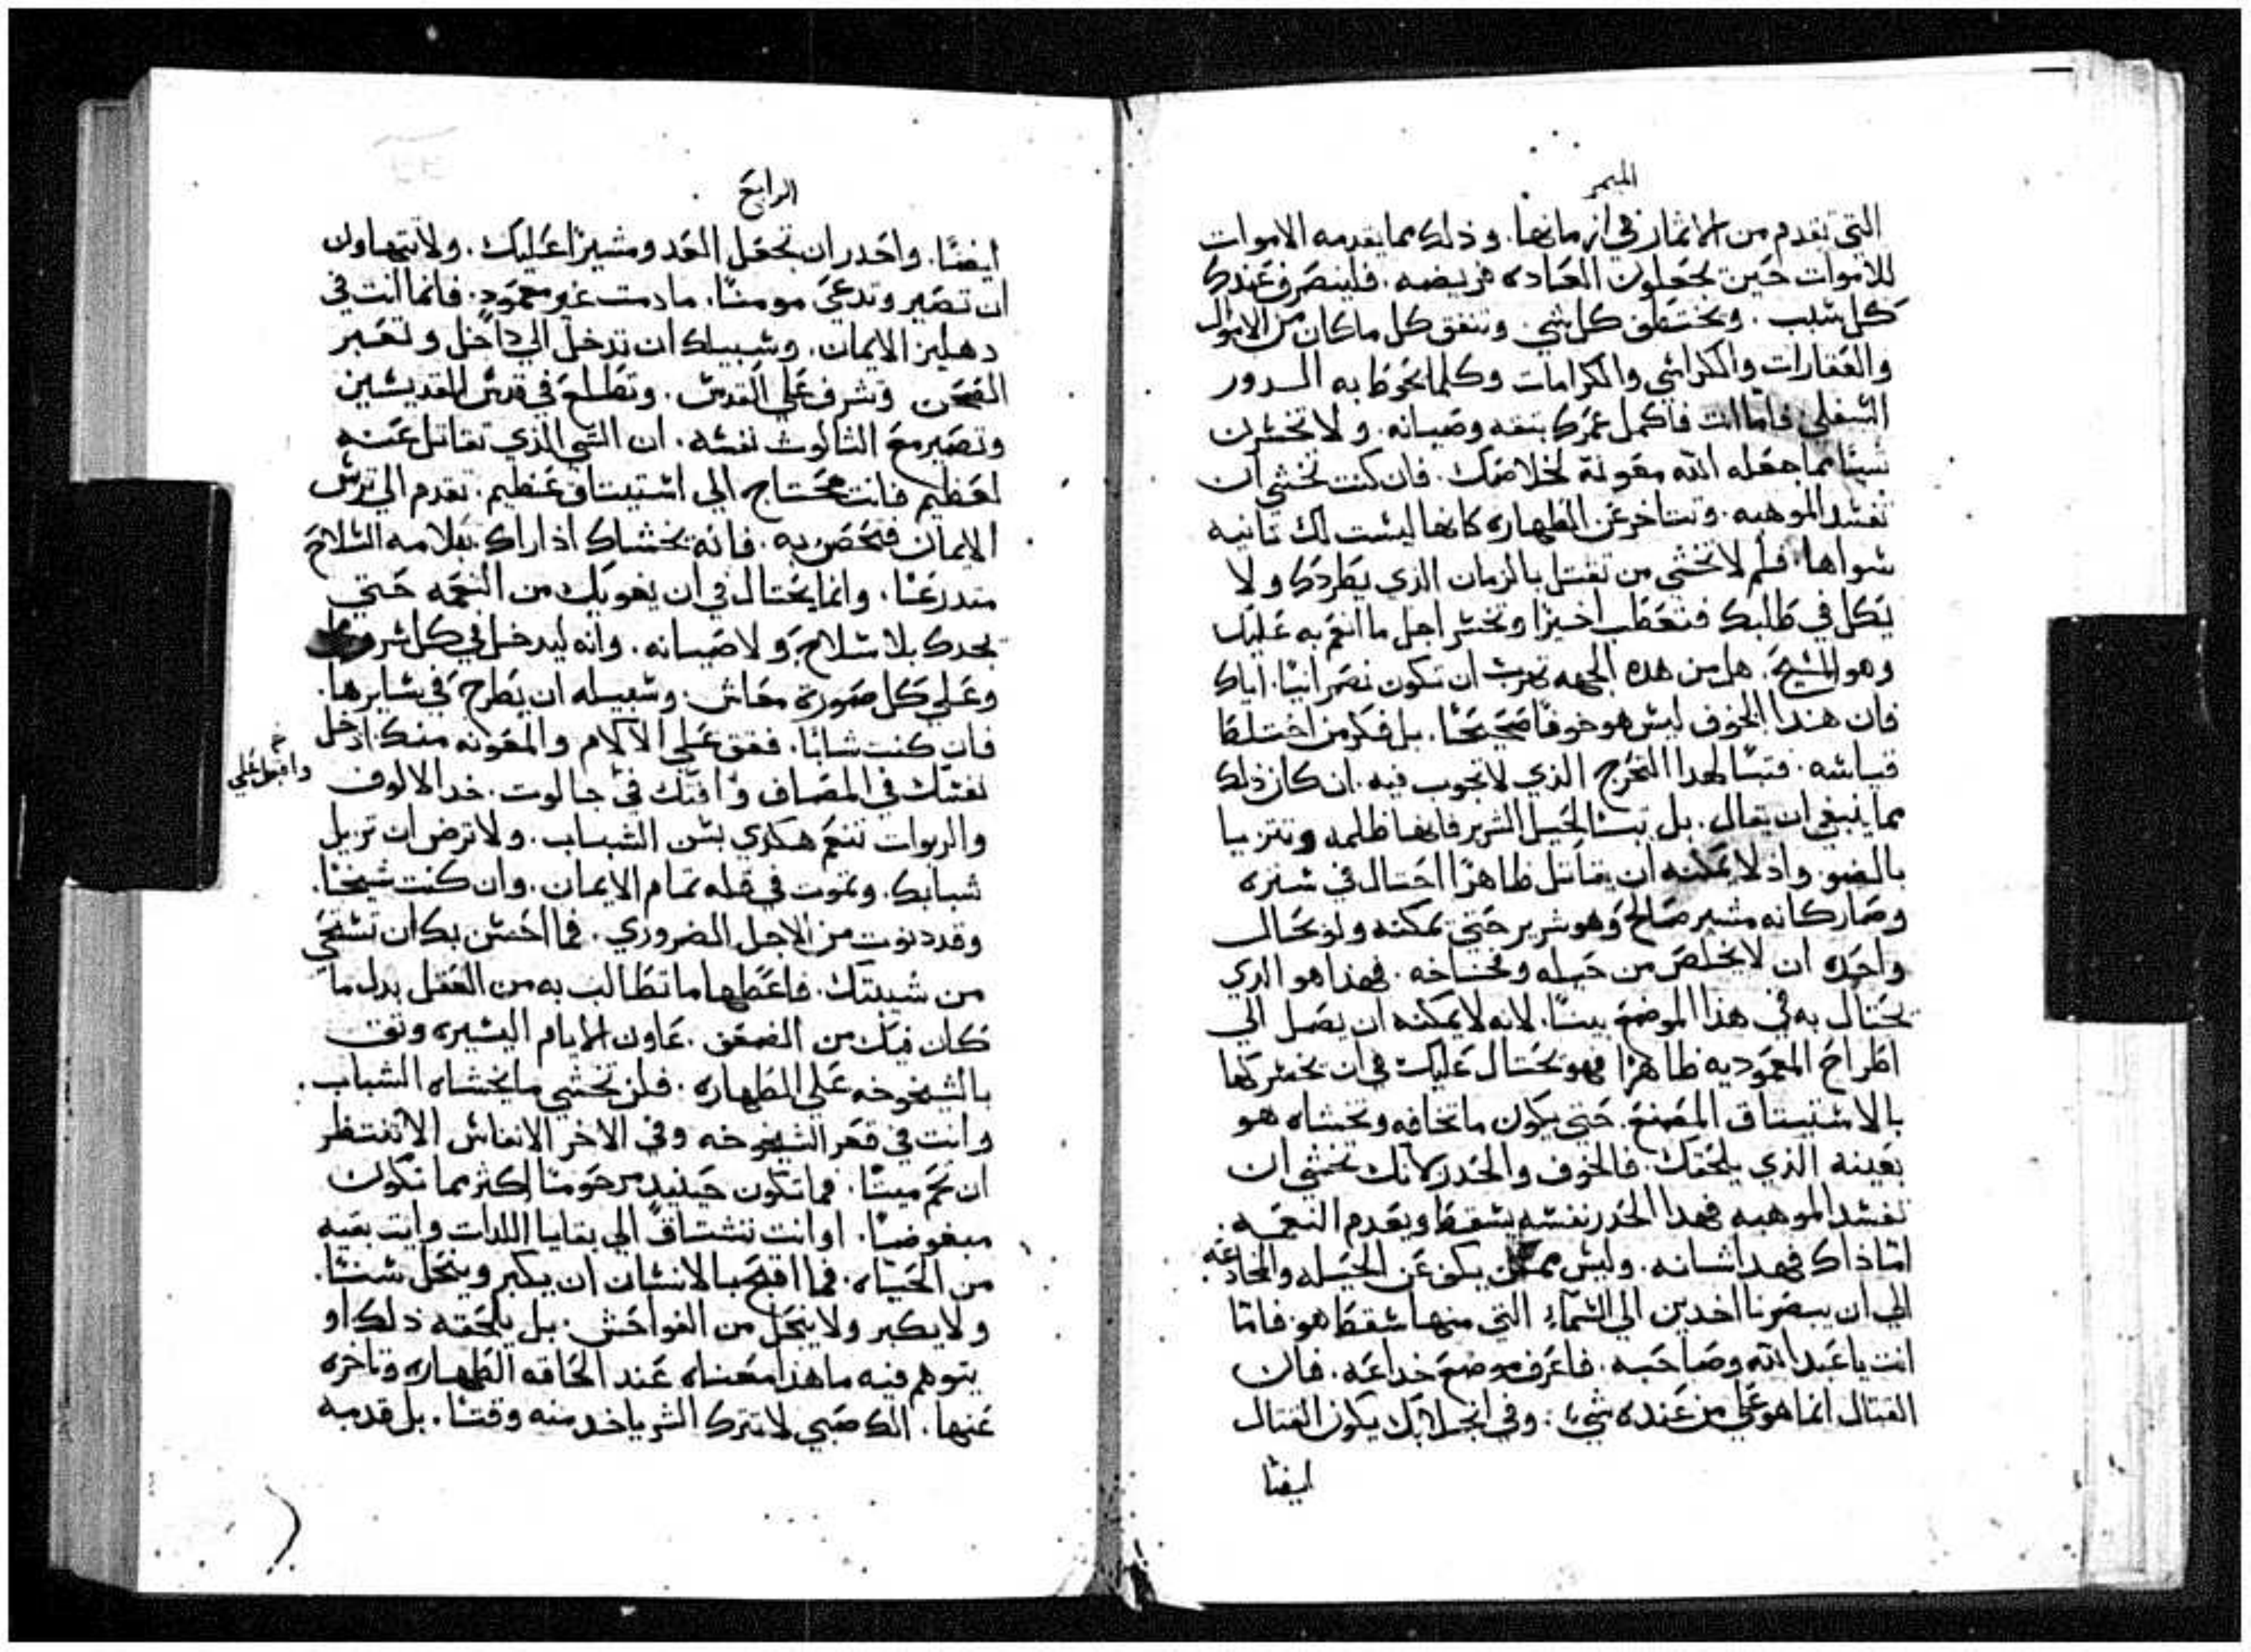 الميمر
التي تقدم من الاثمار في ازمانها. وذلك مما يقدمه الاموات
للاموات حين يجعلون العاده فريضه. فلينصرف عندك
كل سبب. ويختطف كل شي. وتنفق كل ما كان من الاموال
والعقارات والكراسي والكرامات وكلما تحوط به الدور
السفلي فاما انت فاكمل عمرك بثقه وصيانه. ولا تخسرن
شيئا مما جعله الله معونة لخلاصك. فان كنت تخشي ان
تفسد الموهبه. وتتاخر عن الطهاره كانها ليست لك ثانيه
سواها. فلم لا تخشي من تغسل بالزمان الذي يطردك ولا
يكل في طلبك فتعطب اخيرا وتخسر اجل ما انعم به عليك
وهو المسيح. هل من هذه الجهه تهرب ان تكون نصرانيا. اياك
فان هذا الخوف ليس هو خوفا صحيحا. بل فكر من اختلط
قياسه. فتبا لهدا التحرج الذي لا تجوب فيه. ان كان ذلك
مما ينبغي ان يقال. بل تبت الحيل الشرير فانها ظلمه وتتزيا
بالضو. واد لا يمكنه ان يقاتل ظاهرا احتال في ستره
وصار كانه مشير صالح وهو شرير حتي تمكنه ولو بحال
واحده ان لا يخلص من حيله وفخاخه. فهذا هو الدي
يحتال به في هذا الموضع بيننا. لانه لا يمكنه ان يصل الي
اطراح المعموديه ظاهرا فهو يحتال عليك في ان تخسرها
بالاستيتاق المصنع. حتي يكون ما تخافه وتخشاه هو
بعينه الذي يلحقك. فالخوف والحدر كانك تخشي ان
تفسد الموهبه فهدا الحدر نفسه يسقط ويعدم النعمه.
اما ذاك فهدا شانه. وليس ممكن يكف عن الحيله والمخادعه.
الي ان يبصرنا اخدين الي السماء التي منها سقط هو. فاما
انت يا عبد الله وصاحبه. فاعرف موضع خداعه. فان
القتال انما هو علي من عنده شي. وفي اجلابك يكون القتال
ايضا
الرابع
ايضا. واحدر ان تجعل العدو مشيرا عليك. ولا تتهاون
ان تصير وتدعي مومنا. ما دمت غير معمود. فانما انت في
دهليز الايمان. وسبيلك ان تدخل الي داخل وتعبر
الصحن وتشرف علي القدس. وتطلع في قدس القديسين
وتصير مع الثالوث نفسه. ان الشي الذي تقاتل عنه
لعظيم فانت محتاج الي استيتاق عظيم. تقدم الي ترس
الايمان فتحصن به. فانه يخشاك اذا راك بلامه السلاح
متدرعا. وانما يحتال في ان يغويك من النعمه حتي
يجدك بلا سلاح ولا صيانه. وانه ليدخل في كل شر
وعلي كل صورة معاش. وسبيله ان يطرح في سايرها.
فان كنت شابا. فقف علي الالام والمعونه منك ادخل
نفسك في المصاف وافتك في جالوت. خد الالوف
واقبل علي
والربوات تنعم هكدي بسن الشباب. ولا ترض ان تزيل
شبابك. وتموت في قله تمام الايمان. وان كنت شيخا.
وقد دنوت من الاجل الضروري. فما احسن بك ان تستحي
من شيبتك. فاعطها ما تطالب به من العقل بدل ما
كان فيك من الضعف. عاون الايام اليسيره وثق
بالشيخوخه علي الطهاره. فلن تخشي ما يخشاه الشباب.
وانت في قعر الشيخوخه وفي الاخر الانفاس الا تنتظر
ان تحم ميتا. فما تكون حينيد مرحوما اكثر مما تكون
مبغوضا. او انت تشتاق الي بقايا اللدات وانت بقيه
من الحياه. فما اقبح بالانسان ان يكبر وينحل سنا.
ولا يكبر ولا ينحل من الفواحش. بل يلحقه ذلك او
يتوهم فيه ما هذا معناه عند الحاقه الطهاره وتاخره
عنها. الك صبي لا تترك الشر ياخد منه وقتا. بل قدمه